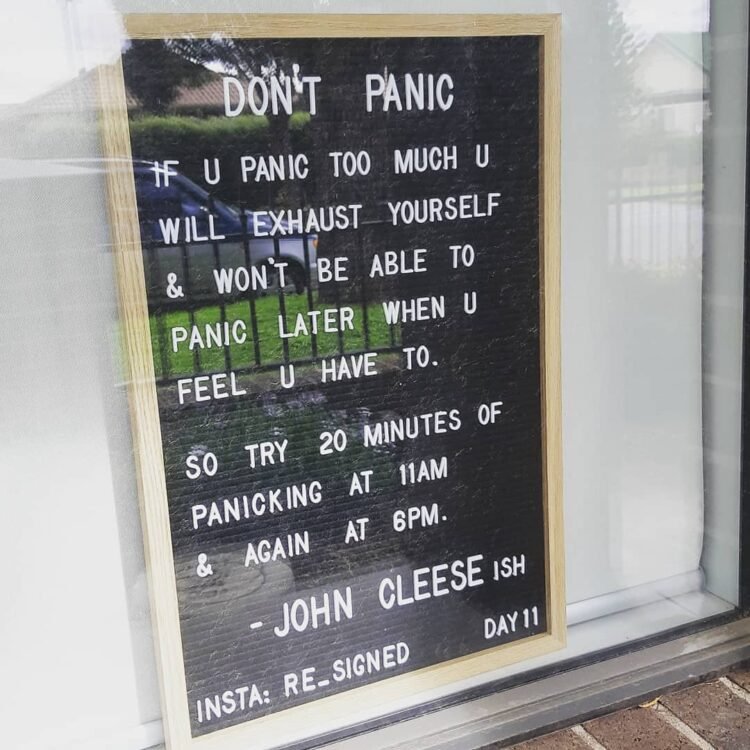 DON'T PANIC
IF U PANIC TOO MUCH U
WILL EXHAUST YOURSELF
& WON'T BE ABLE TO
PANIC LATER WHEN U
FEEL U HAVE TO.
SO TRY 20 MINUTES OF
PANICKING AT 11AM
& AGAIN AT 6PM.
- JOHN CLEESE ISH
DAY 11
INSTA: RE_SIGNED